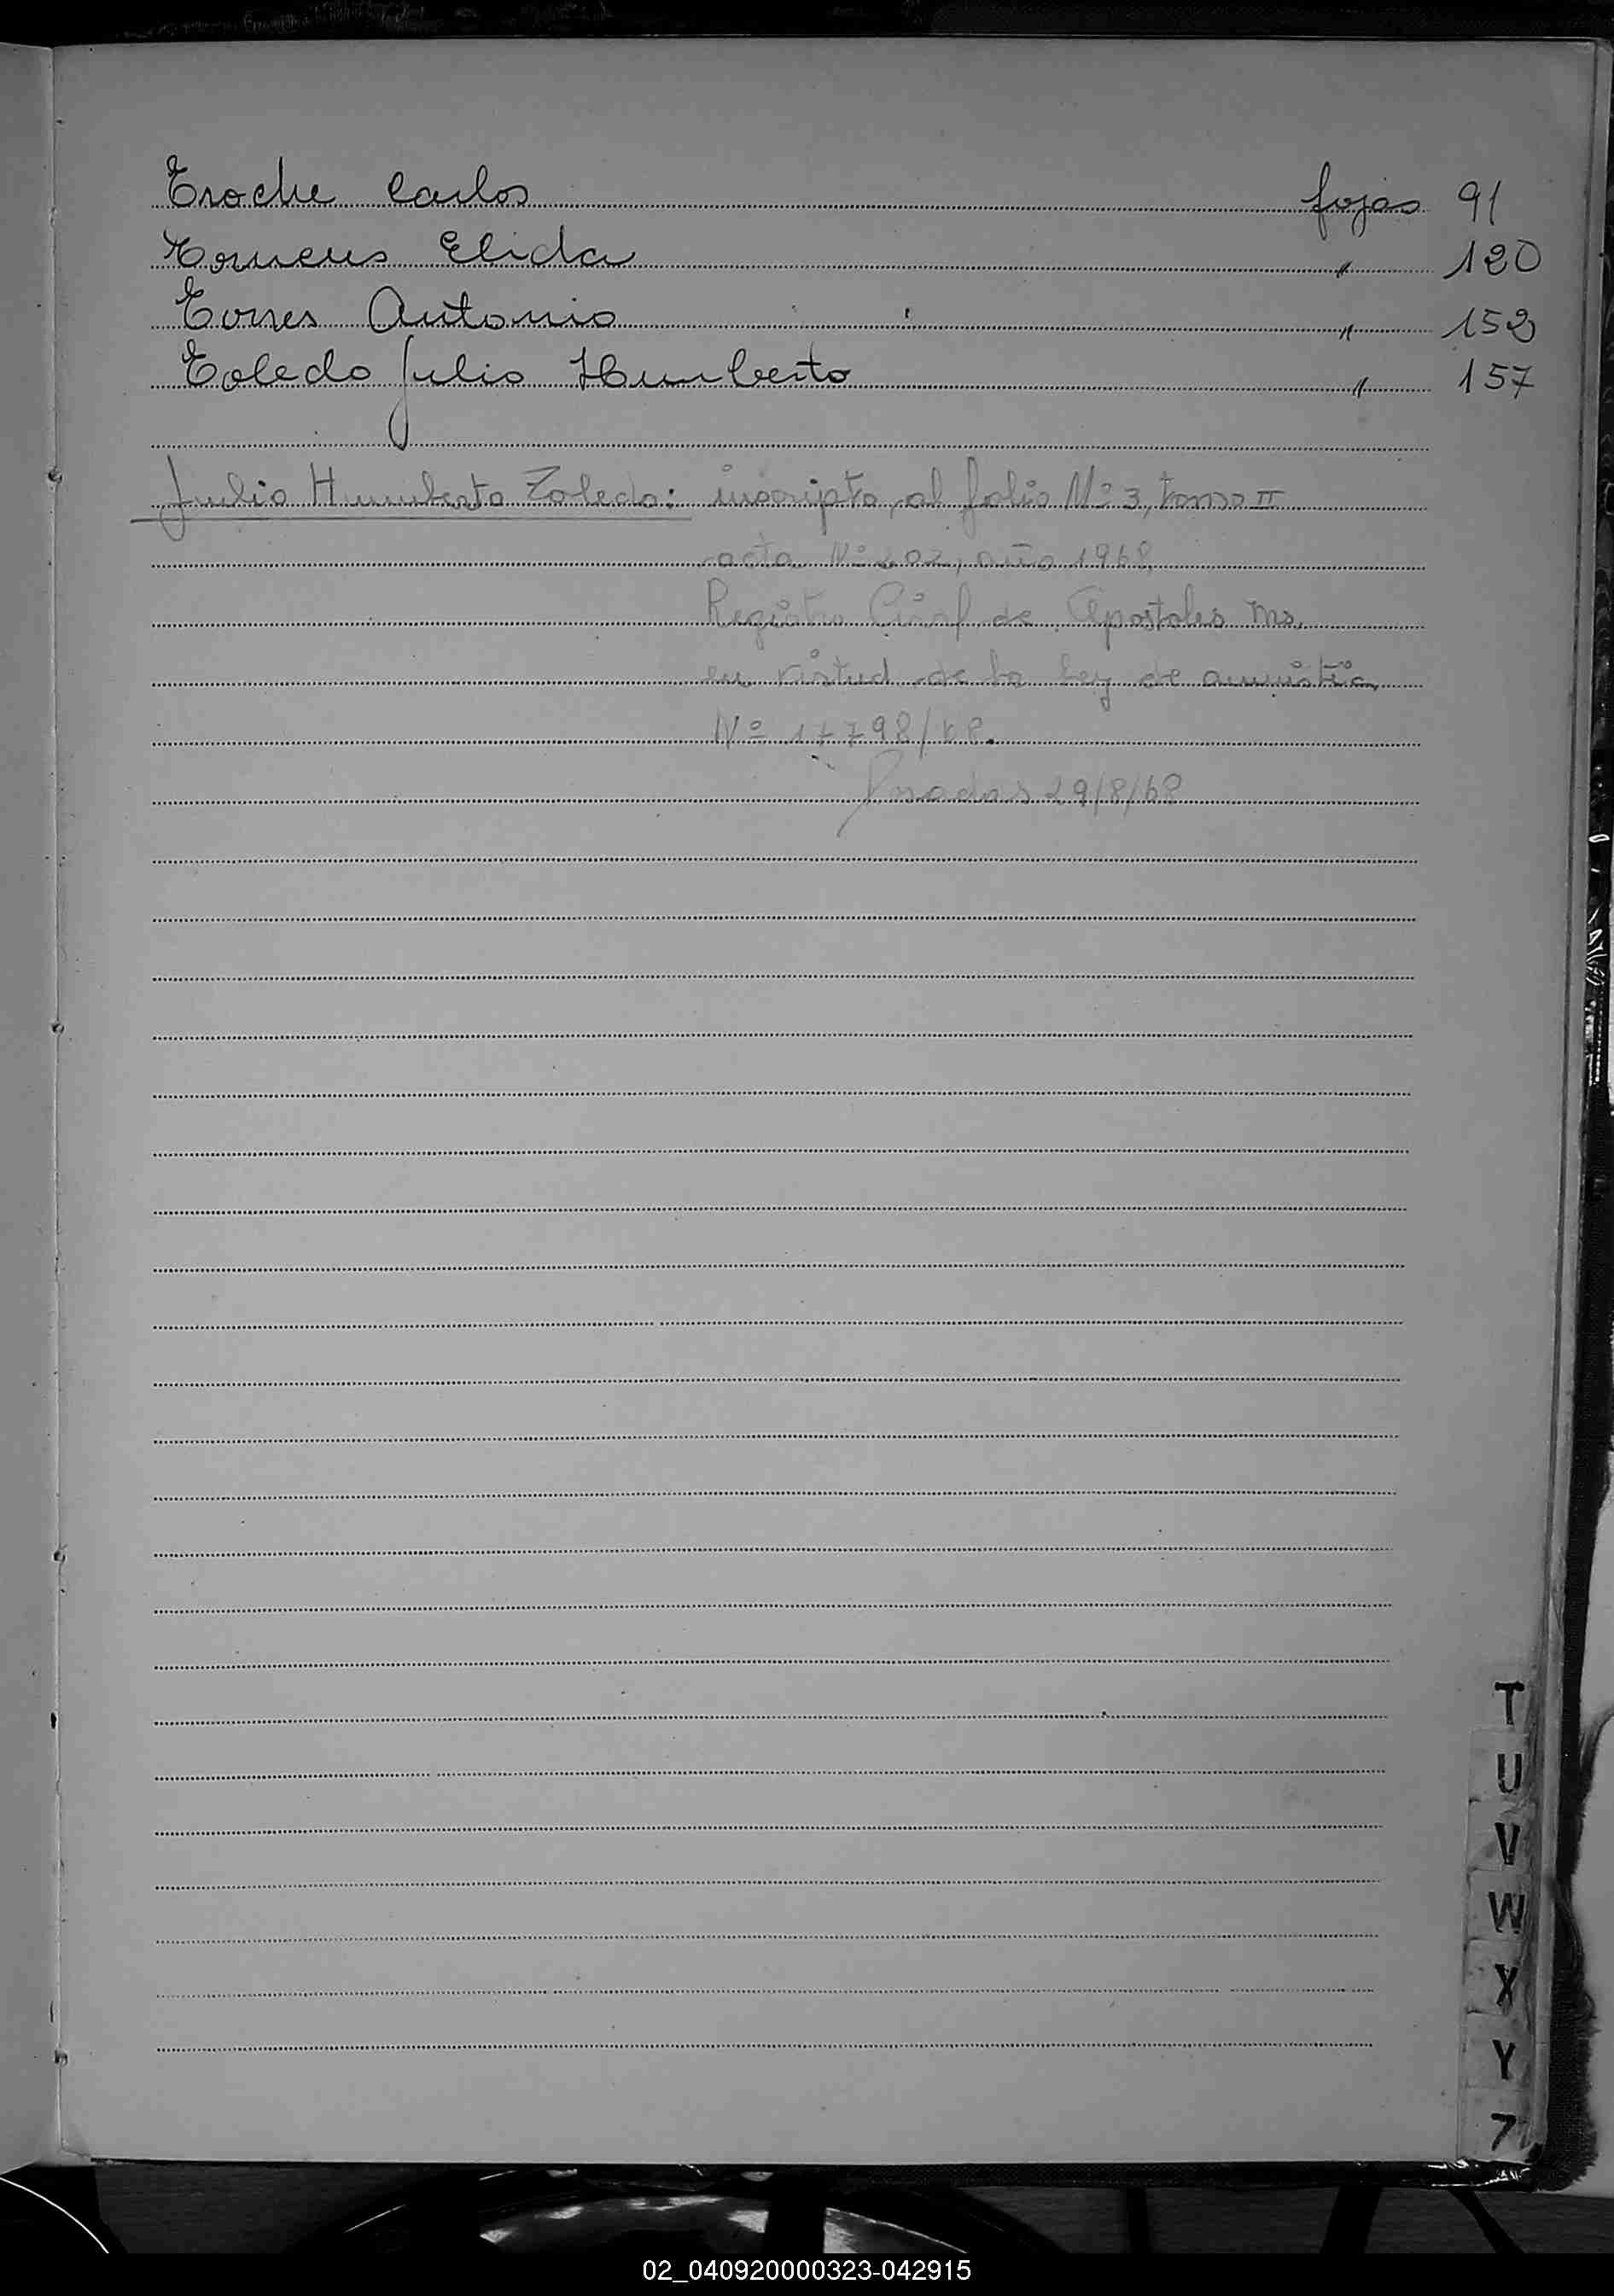 Troche Carlos fojas 91
Elida " 120
Torres Antonio " 152
Toledo Julio Humberto " 157
Julio Humberto Toledo: inscripto al folio Nº 3, tomo II
acta Nº 202, año 1968,
Registro Civil de Apostoles Ms.
en virtud de la ley de amnistia
Nº 17798/68.
Posadas 29/8/68
T
U
V
W
X
Y
Z
02_040920000323-042915